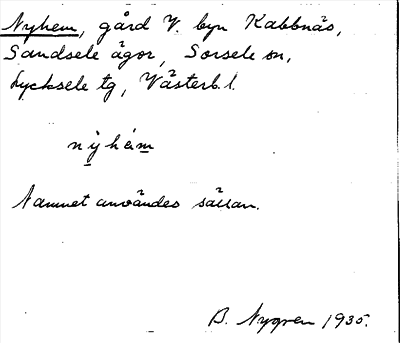 Nyhem, gård V. byn Kabbnäs,
Sandsele ägor, Sorsele sn,
Lycksele tg, Västerb. l.
nỳhèm
Namnet användes sällan.
B. Nygren 1935.